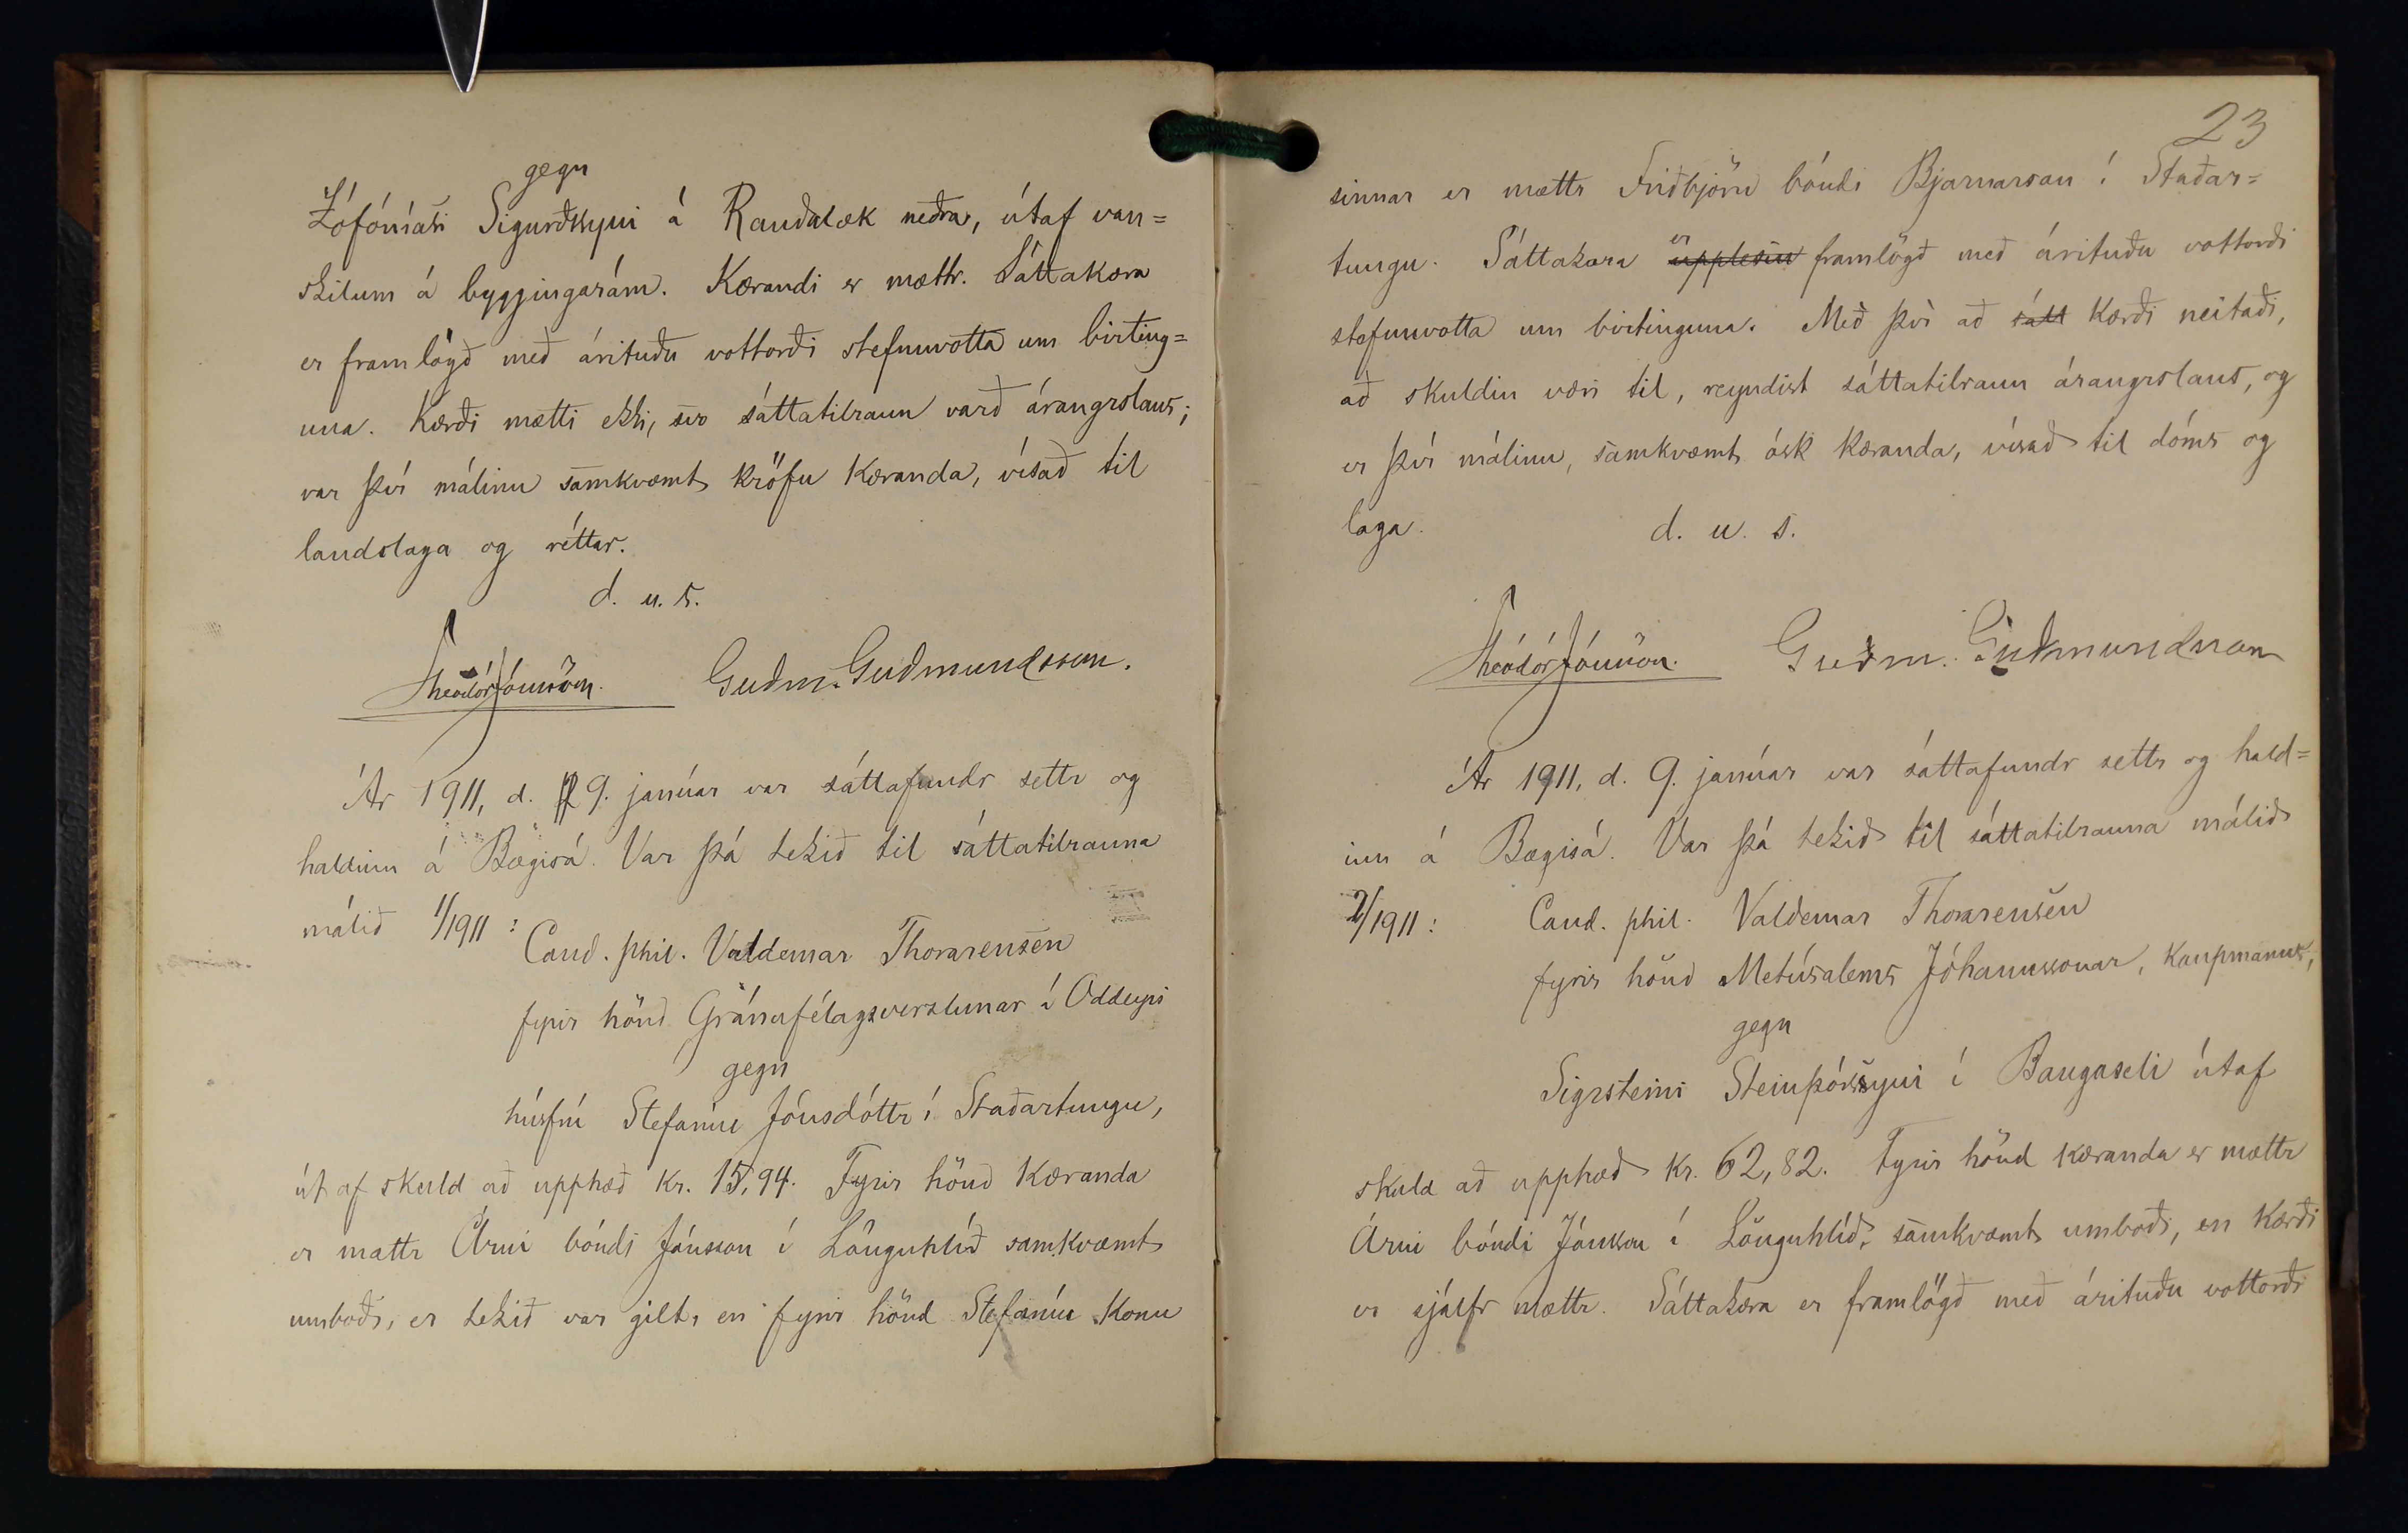 gegn
Zófóníasi Sigurðssyni á Rauðalæk neðra, útaf van=
skilum á byggingarám. Kærandi er mættr. Sáttakæra
er framlögð með árituðu vottorði stefnuvotta um birting=
una. Kærði mætti ekki, svo sáttatilraun varð árangrslaus;
var því málinu samkvæmt kröfu kæranda, vísað til
landslaga og réttar.
d. u. s.
Theódór Jónsson. Guðm. Guðmundsson.
Ár 1911, d. 9. janúar var sáttafundr settr og
haldinn á Bægisá. Var þá tekið til sáttatilrauna
málið 1/1911:
Cand. phil. Valdemar Thorarensen
fyrir hönd Gránufélagsverzlunar á Oddeyri
gegn
húsfrú Stefaníu Jónsdóttr í Staðartungu,
út af skuld að upphæð kr. 15,94. Fyrir hönd kæranda
er mættr Árni bóndi Jónsson í Lönguhlíð samkvæmt
umboði, er tekið var gilt, en fyrir hönd Stefaníu konu
23
sinnar er mættr Friðbjörn bóndi Bjarnarson í Staðar=
tungu. Sáttakæra er upplesin framlögð með árituðu vottorði
stefnuvotta um birtinguna. Með því að sátt kærði neitaði,
að skuldin væri til, reyndist sáttatilraun árangrslaus, og
er því málinu, samkvæmt ósk kæranda, vísað til dóms og
laga.
d. u. s.
Theódór Jónsson. Guðm. Guðmundsson
Ár 1911, d. 9. janúar var sáttafundr settr og hald=
inn á Bægisá. Var þá tekið til sáttatilrauna málið
2/1911: Cand. phil. Valdemar Thorarensen
fyrir hönd Metúsalems Jóhannssonar, kaupmanns,
gegn
Sigrsteini Steinþórssyni í Baugaseli útaf
skuld að upphæð kr. 62,82. Fyrir hönd kæranda er mættr
Árni bóndi Jónsson í Lönguhlíð, samkvæmt umboði, en kærði
er sjálfr mættr. Sáttakæra er framlögð með árituðu vottorði